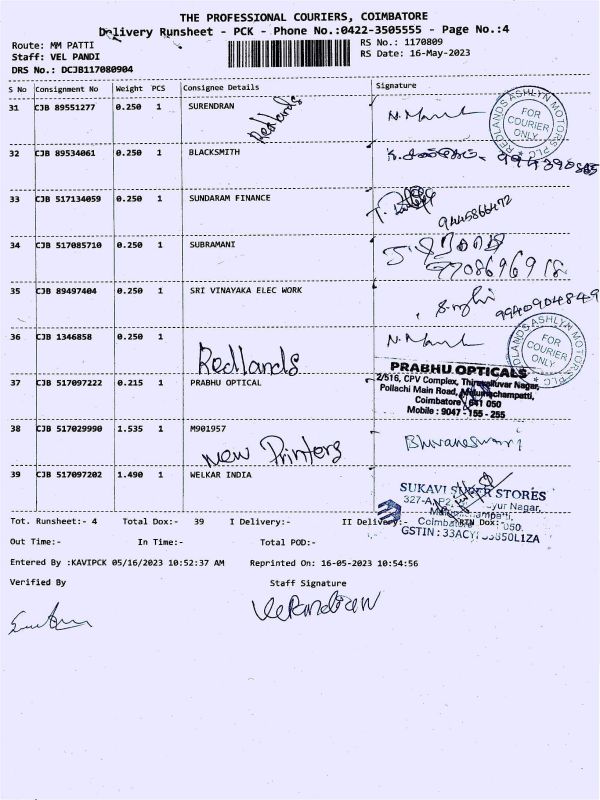 THE PROFESSIONAL COURIERS, COIMBATORE
Delivery Runsheet - PCK - Phone No.:0422-3505555 - Page No.:4
Route: MM PATTI
RS No.: 1170809
Staff: VEL PANDI
RS Date: 16-May-2023
DRS No.: DCJB117080904
S No Consignment No Weight PCS Consignee Details Signature
31 CJB 89551277 0.250 1 SURENDRAN
Redlands
REDLANDS ASHLYN MOTORS PLC
FOR
COURIER
ONLY
32 CJB 89534061 0.250 1 BLACKSMITH
33 CJB 517134059 0.250 1 SUNDARAM FINANCE
9445866472
34 CJB 517085710 0.250 1 SUBRAMANI
35 CJB 89497404 0.250 1 SRI VINAYAKA ELEC WORK
9940904849
36 CJB 1346858 0.250 1
Redlands
REDLANDS ASHLYN MOTORS PLC
FOR
COURIER
ONLY
37 CJB 517097222 0.215 1 PRABHU OPTICAL
PRABHU OPTICALS
2/516, CPV Complex, Thiruvalluvar Nagar,
Pollachi Main Road, Malumachampatti,
Coimbatore - 641 050
Mobile : 9047 - 155 - 255
38 CJB 517029990 1.535 1 M901957
New Printers
Bhuvaneswari
39 CJB 517097202 1.490 1 WELKAR INDIA
SUKAVI SUPER STORES
Tot. Runsheet:- 4 Total Dox:- 39 I Delivery:- II Delivery:- RTN Dox:-
Out Time:- In Time:- Total POD:-
Entered By :KAVIPCK 05/16/2023 10:52:37 AM Reprinted On: 16-05-2023 10:54:56
Verified By Staff Signature